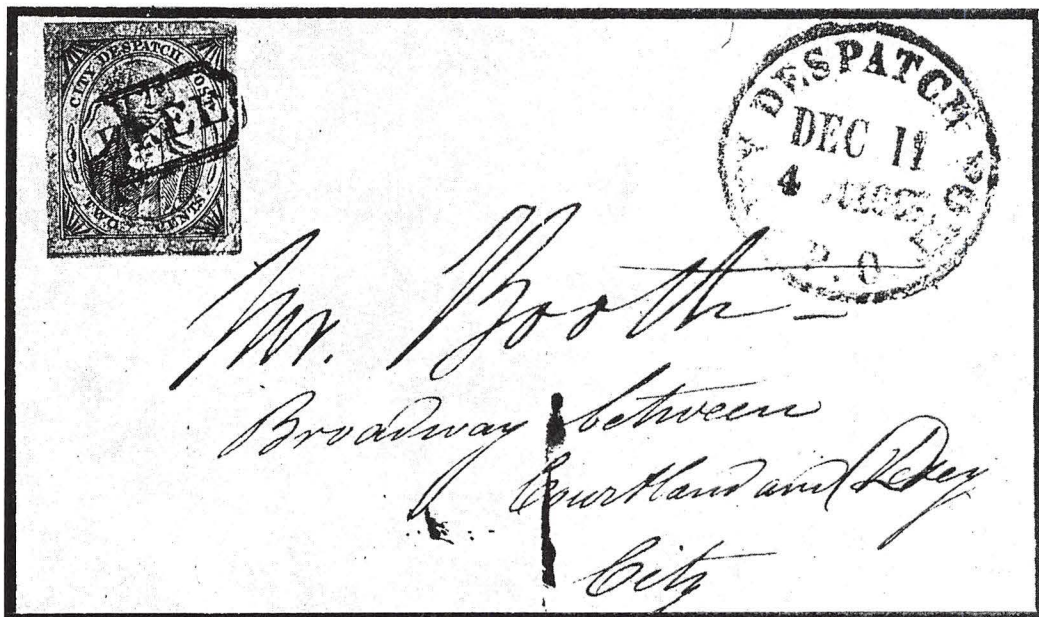 CITY DESPATCH POST
FREE
TWO CENTS
DESPATCH POST
DEC 11
4
P. O
Mr. Booth
Broadway between
Courtland and Dey
City